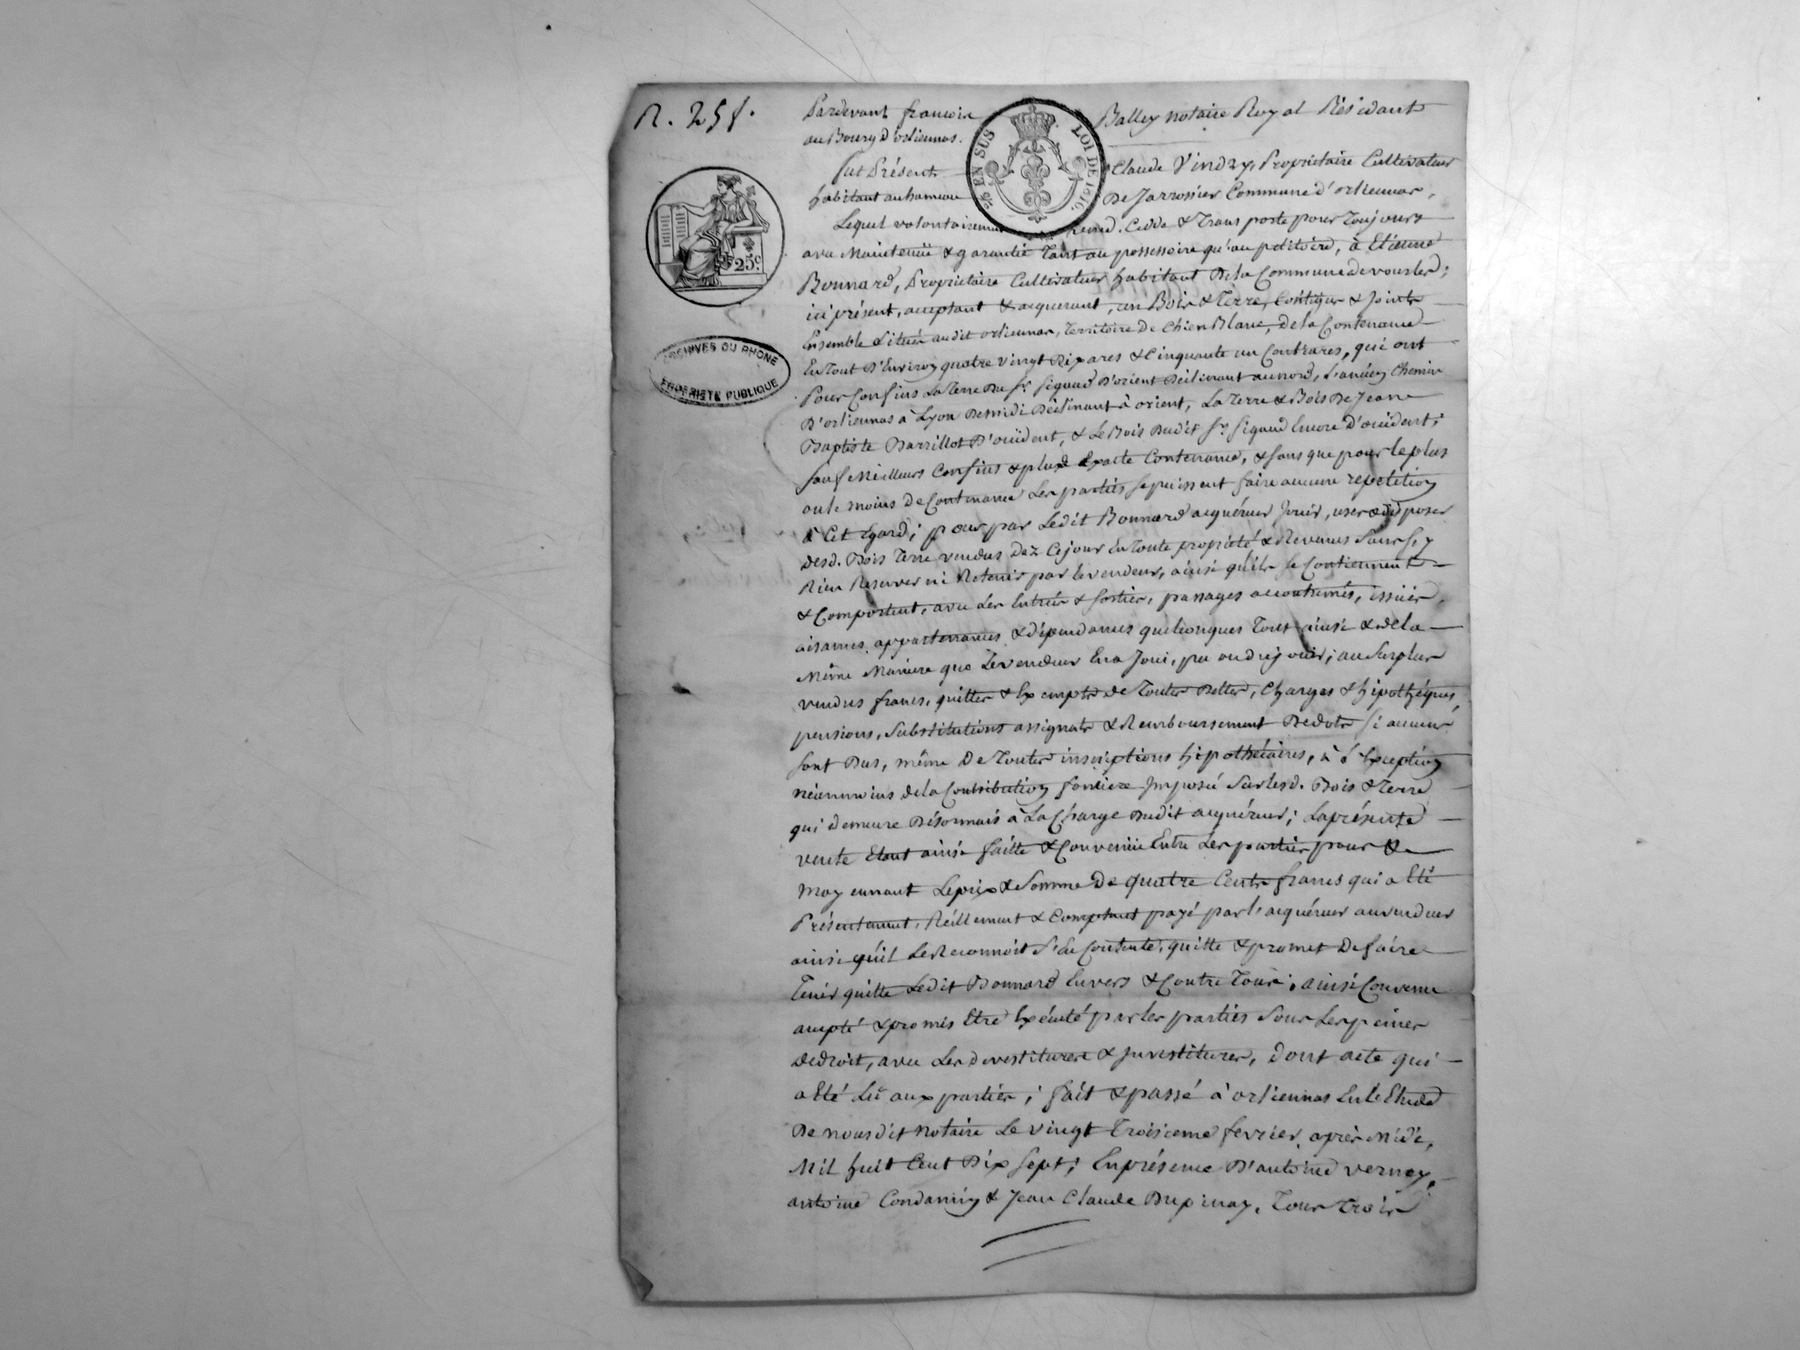 R. 251.
25 EN SUS LOI DE 1816.
25c
ARCHIVES DU RHONE
PROPRIETE PUBLIQUE
Pardevant françois Balley notaire Royal Résidant
au Bourg d'orliennas.
fut Présent Claude Vindry, Propriétaire Cultivateur
habitant au hameau De Jarrossier Commune d'orliennas,
Lequel volontairement vend. Cedde & Transporte pour Toujours
avec Maintenüe & garantie Tant au possessoire qu'au petitoire, à Etienne
Bonnard, Propriétaire Cultivateur habitant De la Commune de vourles;
ici présent, acceptant & acquerant, un Bois & Terre, Contigus & Joints
Ensemble Situés audit orliennas, Territoire de Chien Blanc, de la Contenance
En Tout D'Environ quatre vingt Dix ares & Cinquante un Centiares, qui ont
Pour Confins La Terre Du Sr. Sigaud D'orient Déclinant au nord, L'ancien Chemin
D'orliennas à Lyon De midi Déclinant à orient, La Terre & Bois De Jean
Baptiste Barrillot D'occident, & Le Bois Dudit Sr. Sigaud Encore d'occident;
Sauf Meilleurs Confins & plus Exacte Contenance, & sans que pour le plus
ou le moins de Contenance Les parties se puissent faire aucune répétition
à Cet Egard; pour par Ledit Bonnard acquéreur Jouir, user & disposer
Desd. Bois Terre vendus Dez Ce jour En Toute propriété & Revenus Sans s'y
Rien Reserver ni Retenir par le vendeur, ainsi qu'ils se Contiennent
& Comportent, avec Les Entrées & Sorties, passages accoutumés, issües,
aisances appartenances & dépendances quelconques Tout ainsi & de la
Même Maniere que Le vendeur En a Joui, pu ou dû jouir; au Surplus
vendus francs, quittes & Exempts de Toutes Dettes, Charges & hipothéques,
pensions, Substitutions assignats & Remboursement De dots si aucuns
sont Dus, même De Toutes inscriptions hipothécaires, à l'Exception
néanmoins de la Contribution fonciere Imposée Sur lesd. Bois & Terre
qui demeure Désormais à La Charge Dudit acquéreur; La présente
vente Etant ainsi faitte & Convenüe Entre Les parties pour &
moyennant Le prix & Somme De quatre Cents francs qui a Eté
Présentement, Réellement & Comptant payé par l'acquéreur au vendeur
ainsi qu'il Le Reconnoit S'en Contente, quitte & promet De faire
Tenir quitte Ledit Bonnard Envers & Contre Tous; ainsi Convenu
accepté & promis Etre Exécuté par les parties Sous Les peines
De droit, avec Les devestitures & Investitures, dont acte qui
a Eté Lû aux parties; fait & passé à orliennas En le Etude
De nousdit notaire Le vingt Troisieme fevrier, après Midi,
Mil huit Cent Dix Sept; En présence D'antoine vernay,
antoine Condamin & Jean Claude Dupinay, Tous Trois